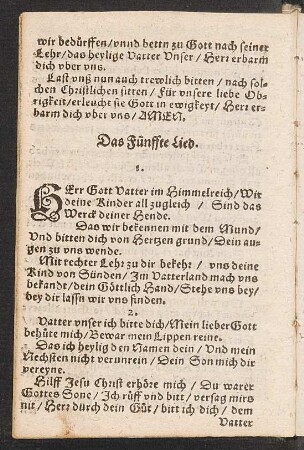 wir bedürffen/vnnd bettn zu Gott nach seiner
Lehr/das heylige Vatter Vnser/Herr erbarm
dich vber vns.
Last vnß nun auch trewlich bitten/nach sol-
chen Christlichen sitten/Für vnsere liebe Ob-
rigkeit/erleucht sie Gott in ewigkeyt/Herr er-
barm dich vber vns/AMEN.
Das Fünffte Lied.
1.
HErr Gott Vatter im Himmelreich/Wir
deine Kinder all zugleich / Sind das
Werck deiner Hende.
Das wir bekennen mit dem Mund/
Vnd bitten dich von Hertzen grund/Dein au-
gen zu vns wende.
Mit rechter Lehr zu dir bekehr / vns deine
Kind von Sünden/Im Vatterland mach vns
bekandt/dein Göttlich Hand/Stehe vns bey/
bey dir lassn wir vns finden.
2.
Vatter vnser ich bitte dich/Mein lieber Gott
behüte mich/Bewar mein Lippen reine.
Das ich heylig den Namen dein / Vnd mein
Nechsten nicht verunrein/Dein Son mich dir
vereyne.
Hilff Jesu Christ erhöre mich / Du warer
Gottes Sone/Ich rüff vnd bitt/versag mirs
nit/Herr durch dein Güt/bitt ich dich/dem
Vatter